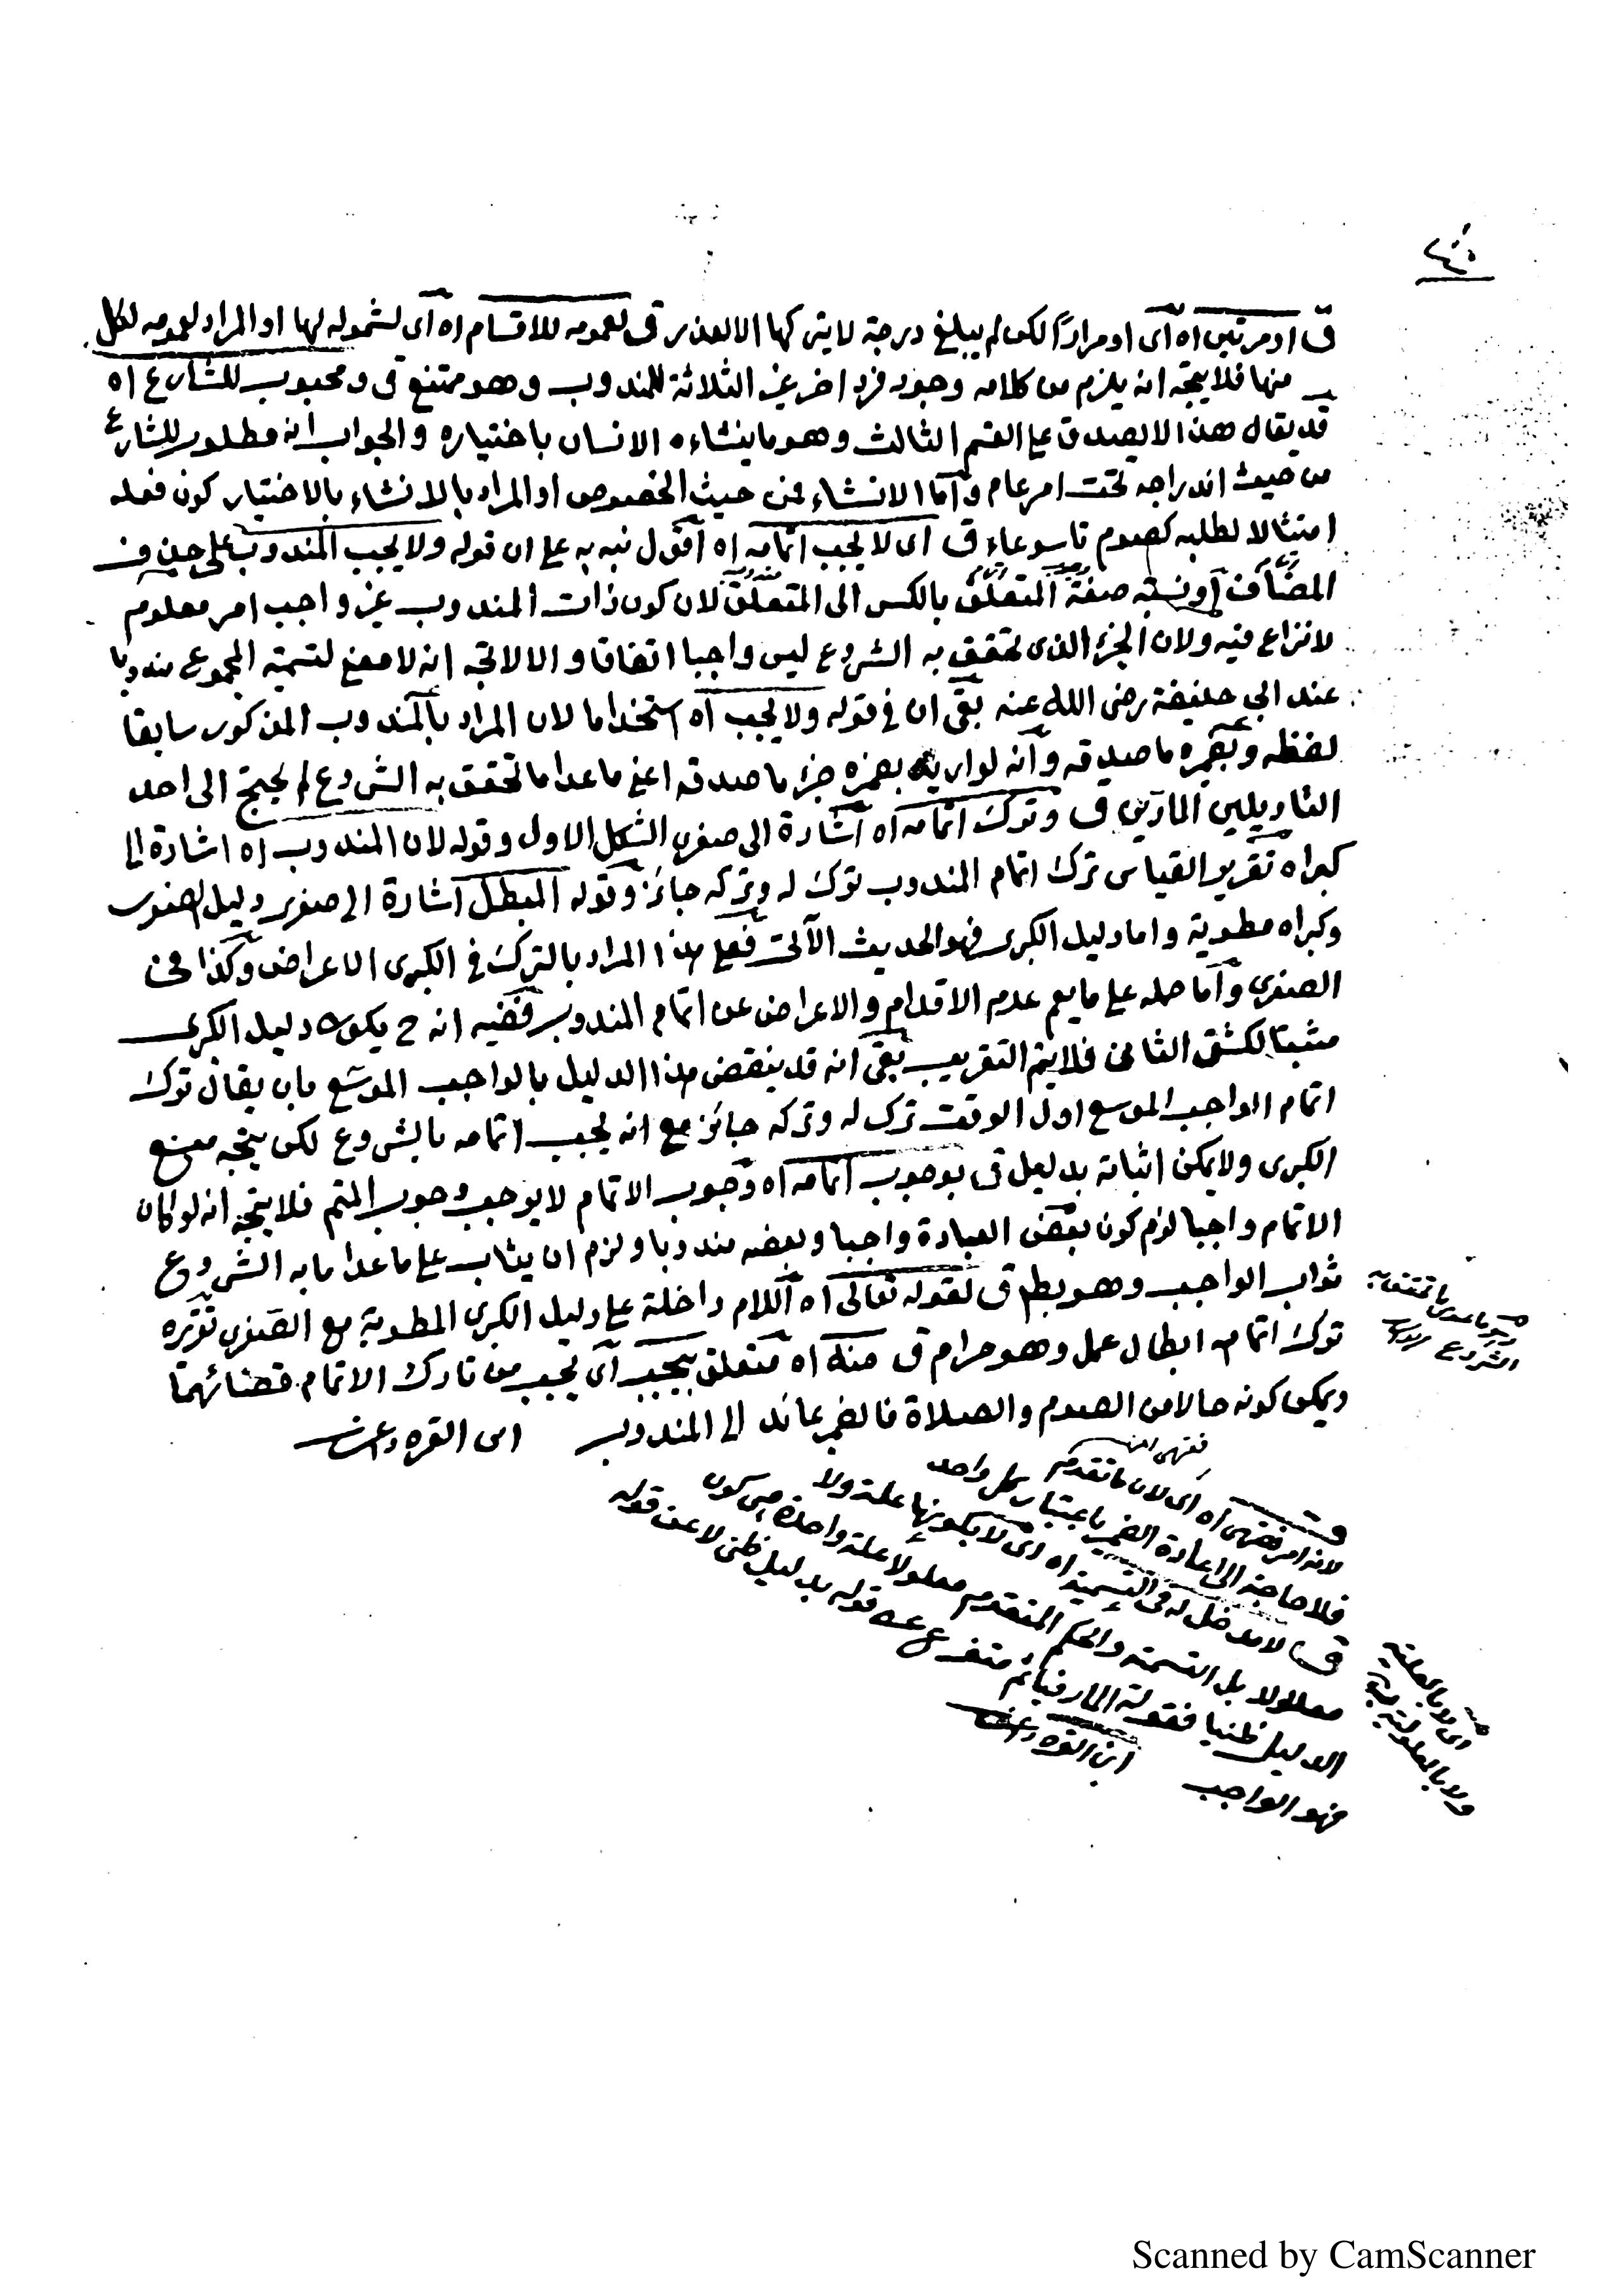 ق او مرتين اه اى او مرارًا لكن لم يبلغ درجة لا يتركها الا لعذر ق لعمومه للاقسام اه اى لشموله لها او المراد لعمومه لكل
منها فلا يتجه انه يلزم من كلامه وجود فرد اخر غير الثلاثة للمندوب وهو ممتنع ق ومحبوب للشارع اه
قد يقال هذا لا يصدق على القسم الثالث وهو ما ينشاءه الانسان باختياره والجواب انه مطلوب للشارع
من حيث اندراجه تحت امر عام واما الانشاء فمن حيث الخصوص او المراد بالانشاء بالاختيار كون فعله
امتثالا لطلبه كصوم تاسوعاء ق اى لا يجب اتمامه اه اقول نبه به على ان قوله ولا يجب المندوب على حذف
المضاف او نسبة صفة المتعلق بالكسر الى المتعلق لان كون ذات المندوب غير واجب امر معلوم
لا نزاع فيه ولان الجزء الذى تحقق به الشروع ليس واجبا اتفاقا والا لاتجه انه لا معنى لتسمية المجموع مندوبا
عند ابى حنيفة رضى الله عنه بقى ان فى قوله ولا يجب اه استخداما لان المراد بالمندوب المذكور سابقا
لفظه وبضميره ما صدقه وانه لو اريد بضميره جزء ما صدقه اعنى ما عدا ما تحقق به الشروع لم يحتج الى احد
التاويلين المارين ق وترك اتمامه اه اشارة الى صغرى الشكل الاول وقوله لان المندوب اه اشارة الى
كبراه تقرير القياس ترك اتمام المندوب ترك له وتركه جائز وقوله المبطل اشارة الى صغرى دليل الصغرى
وكبراه مطوية واما دليل الكبرى فهو الحديث الآتى فعلى هذا المراد بالترك فى الكبرى الاعراض وكذا فى
الصغرى واما حمله على ما يعم عدم الاقدام والاعراض عن اتمام المندوب ففيه انه ح يكون دليل الكبرى
مثبتا لكشق الثانى فلا يتم التقريب بقى انه قد ينقض هذا الدليل بالواجب الموسّع بان يقال ترك
اتمام الواجب الموسع اول الوقت ترك له وتركه جائز مع انه يجب اتمامه بالشروع لكن يتجه منع
الكبرى ولا يمكن اثباته بدليل ق بوجوب اتمامه اه وجوب الاتمام لا يوجب وجوب المتم فلا يتجه انه لو كان
الاتمام واجبا لزم كون بعض العبادة واجبا وبعضه مندوبا ولزم ان يثاب على ما عدا ما به الشروع
ثواب الواجب وهو بط ق لقوله تعالى اه اللام داخلة على دليل الكبرى المطوية مع الصغرى تقريره
ترك اتمامه ابطال عمل وهو حرام ق منه اه متعلق بيجب اى يجب من تارك الاتمام قضائهما
ويمكن كونه حالا من الصوم والصلاة فالضمير عائد الى المندوب ابن القره داغى
ما تحقق به
الشروع
فقهى
لانه امر فقهى اه اى لان ما تقدم
فلا حاجة الى اعادة الضمير باعتبار كل واحد
ق لا مدخل له فى التسمية اه اى لا بكونها علة ولا
معلولا بل التسمية والحكم المتقدم معلولا علة واحدة هى كون
الدليل ظنيا فقوله المار متفرع على قوله بدليل ظنى لا على قوله
فهو الواجب ابن القره داغى
اى لا بالعلية
ولا بالمعلولية